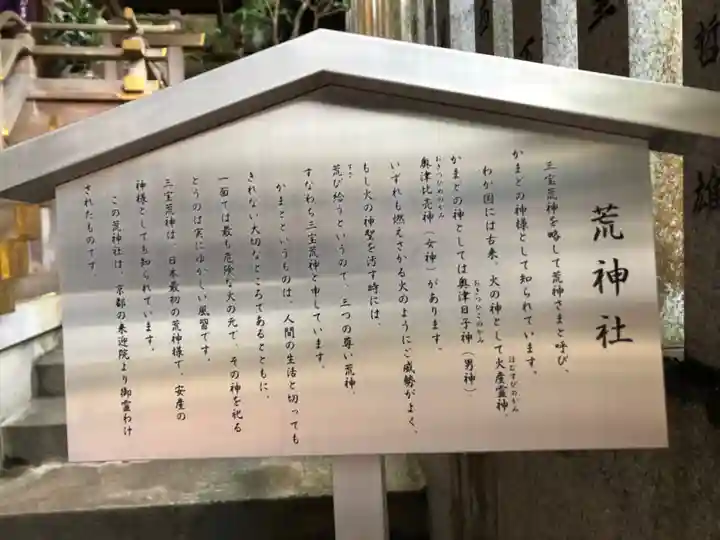 荒神社
三宝荒神を略して荒神さまと呼び、
かまどの神様として知られています。
わが国には古来、火の神として火産霊神、
ほむすびのかみ
かまどの神としては奥津日子神（男神）
おきつひこのかみ
奥津比売神（女神）があります。
おきつひめのかみ
いずれも燃えさかる火のようにご威勢がよく、
もし火の神聖を汚す時には、
荒び給うというので、三つの尊い荒神、
すさ
すなわち三宝荒神と申しています。
かまどというものは、人間の生活と切っても
きれない大切なところであるとともに、
一面では最も危険な火の元で、その神を祀る
とうのは実にゆかしい風習です。
三宝荒神は、日本最初の荒神様で、安産の
神様としても知られています。
この荒神社は、京都の来迎院より御霊わけ
されたものです。
哲
雄